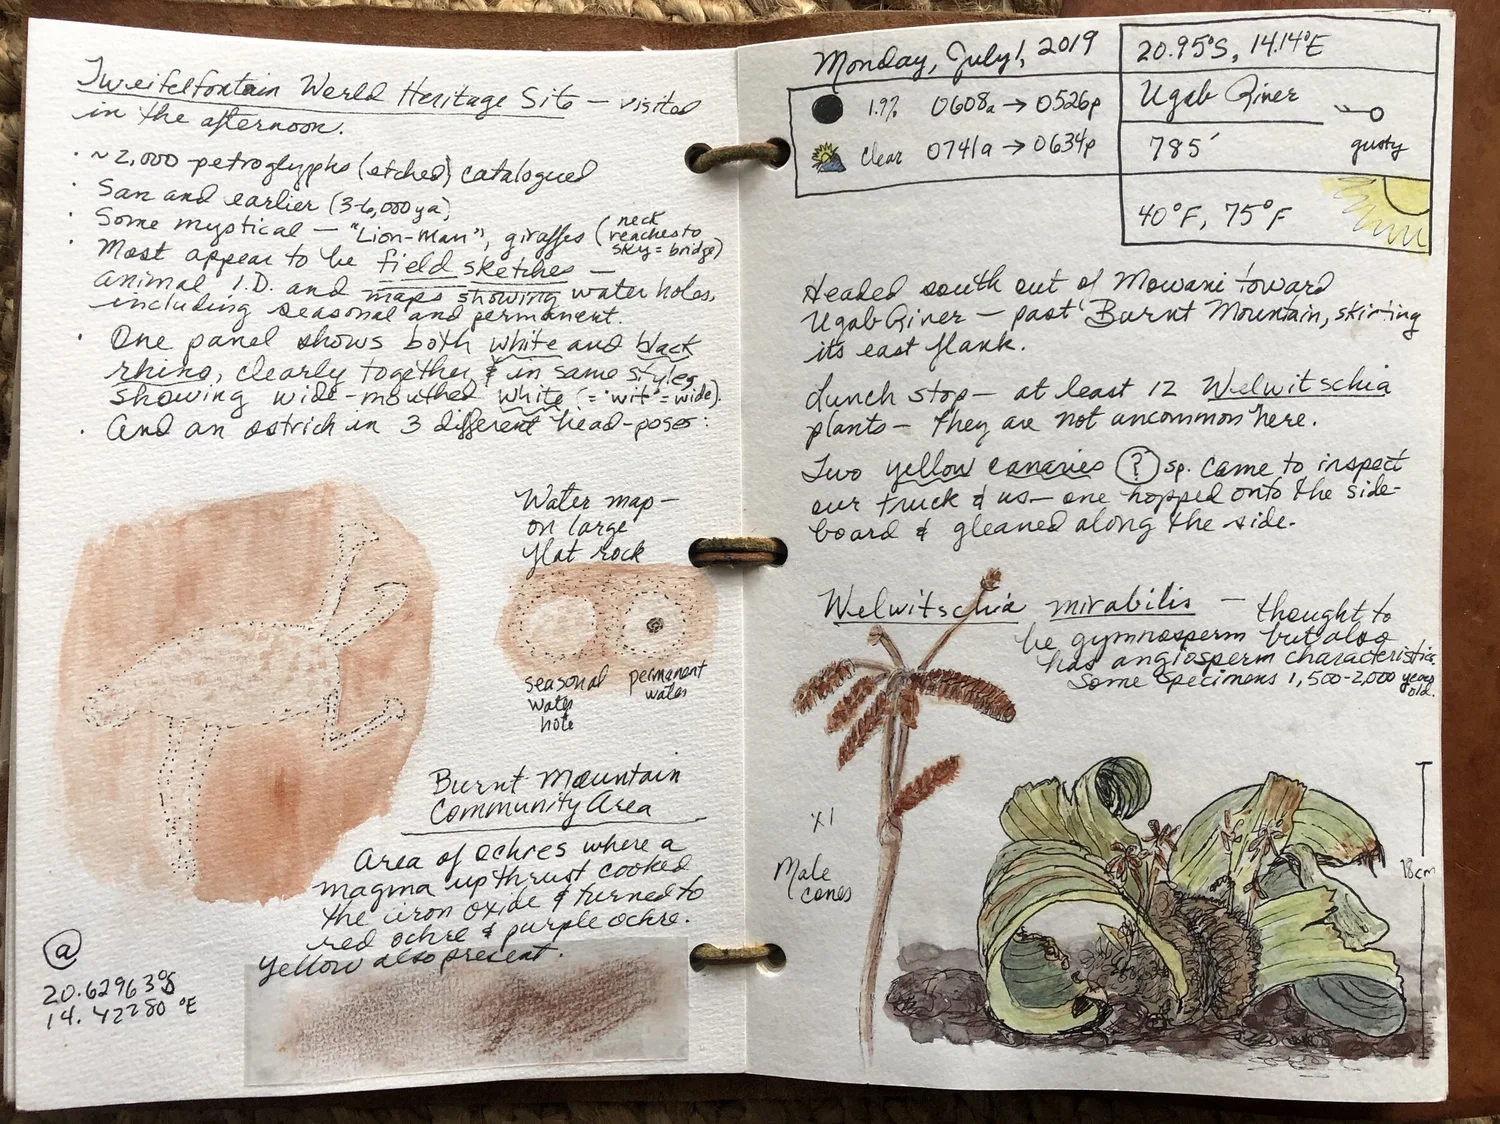 Tweifelfontain World Heritage Site — visited
in the afternoon.
· ~ 2,000 petroglyphs (etched) catalogued
· San and earlier (3-6,000 ya)
· Some mystical — "Lion-Man", giraffes (neck
reaches to
sky = bridge)
· Most appear to be field sketches —
animal I.D. and maps showing water holes,
including seasonal and permanent.
· One panel shows both white and black
rhino, clearly together & in same styles
showing wide-mouthed white (= "wit" = wide).
· And an ostrich in 3 different head-poses.
Water map —
on large
flat rock
seasonal
water
hole
permanent
water
Burnt Mountain
Community Area
Area of ochres where a
magma upthrust cooked
the iron oxide & turned to
red ochre & purple ochre.
Yellow also present.
@
20.62963°S
14.42280 °E
Monday, July 1, 2019
1.9% 0608a → 0526p
Clear 0741a → 0634p
20.95°S, 14.14°E
Ugab River
785´
gusty
40°F, 75°F
Headed south out of Mowani toward
Ugab River — past Burnt Mountain, skirting
its east flank.
Lunch stop — at least 12 Welwitschia
plants — they are not uncommon here.
Two yellow canaries ? sp. came to inspect
our truck & us — one hopped onto the side-
board & gleaned along the side.
Welwitschia mirabilis — thought to
be gymnosperm but also
has angiosperm characteristics.
Some specimens 1,500-2,000 years
old.
x1
Male
cones
18cm